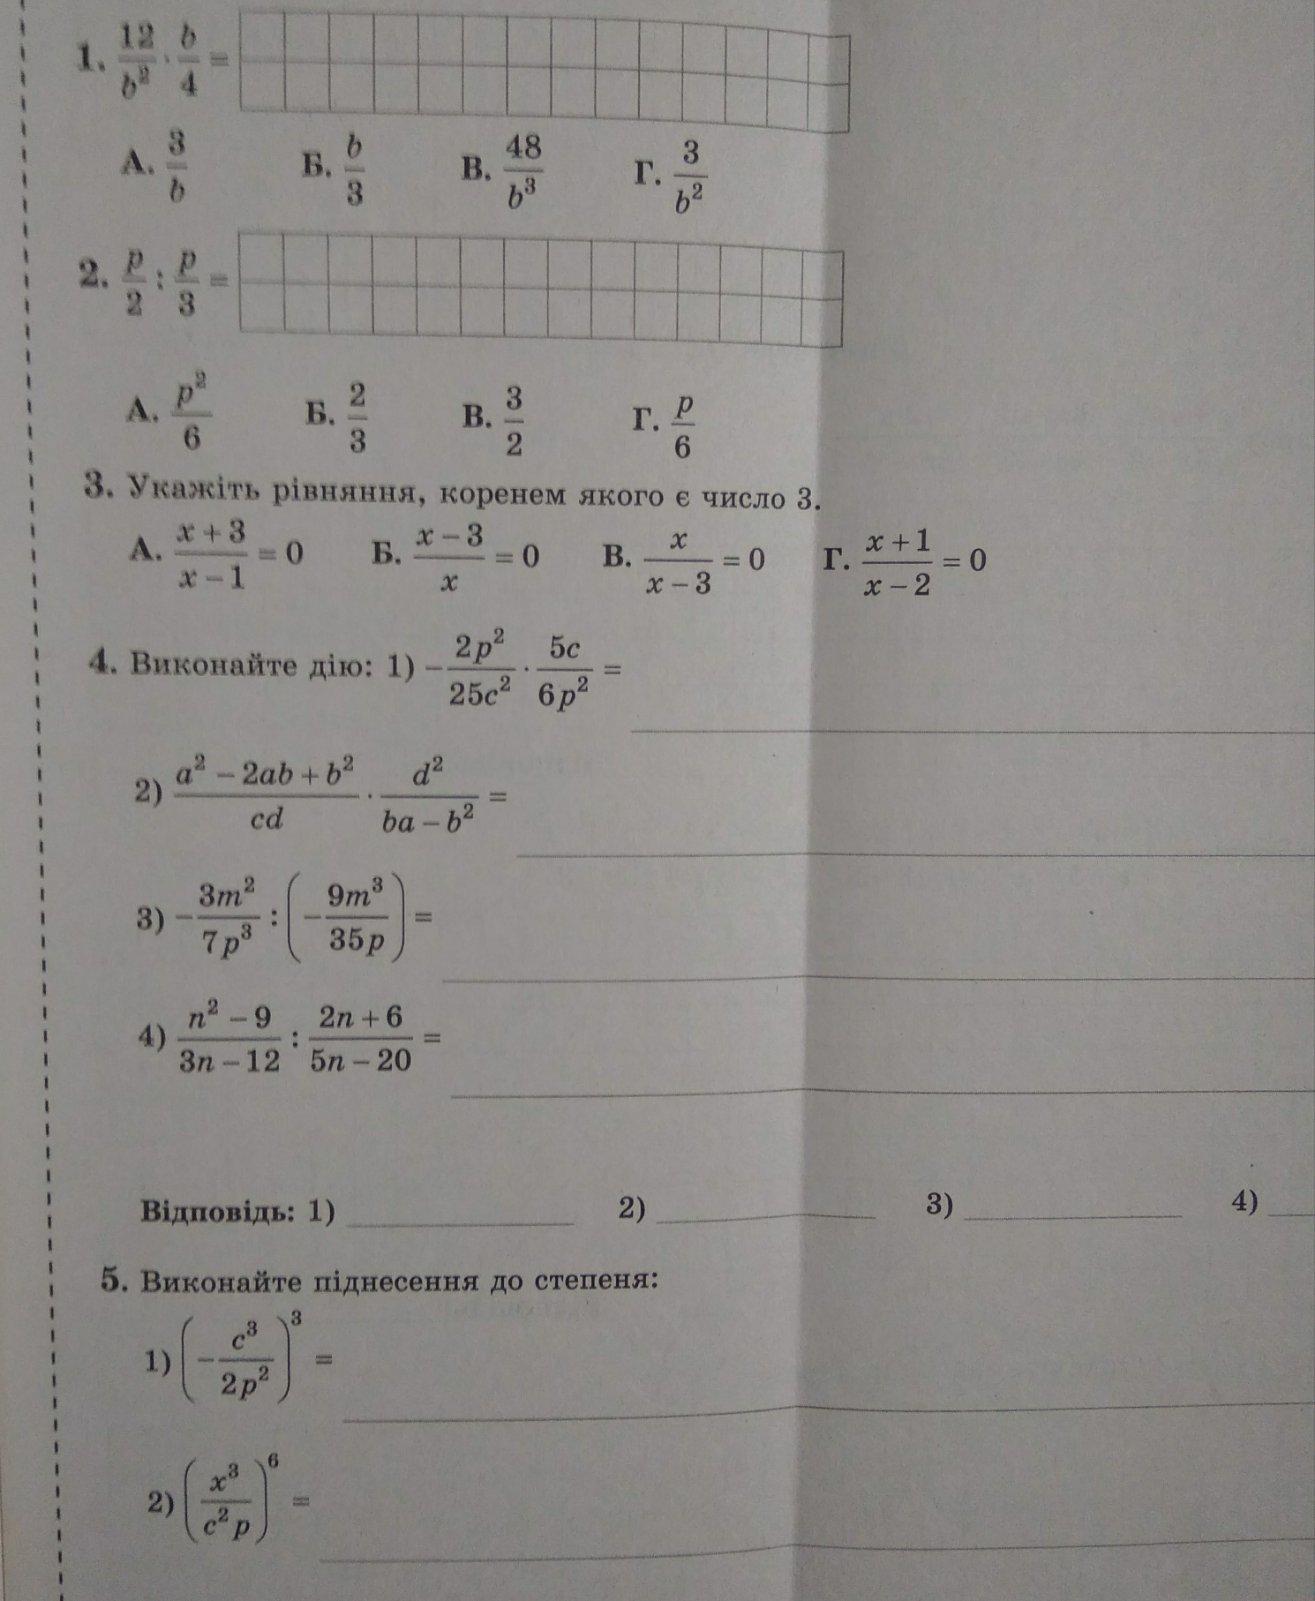 1. \frac{12}{b^2} \cdot \frac{b}{4} =
А. \frac{3}{b} Б. \frac{b}{3} В. \frac{48}{b^3} Г. \frac{3}{b^2}
2. \frac{p}{2} : \frac{p}{3} =
А. \frac{p^2}{6} Б. \frac{2}{3} В. \frac{3}{2} Г. \frac{p}{6}
3. Укажіть рівняння, коренем якого є число 3.
А. \frac{x+3}{x-1} = 0 Б. \frac{x-3}{x} = 0 В. \frac{x}{x-3} = 0 Г. \frac{x+1}{x-2} = 0
4. Виконайте дію: 1) -\frac{2p^2}{25c^2} \cdot \frac{5c}{6p^2} =
2) \frac{a^2-2ab+b^2}{cd} \cdot \frac{d^2}{ba-b^2} =
3) -\frac{3m^2}{7p^3} : \left(-\frac{9m^3}{35p}\right) =
4) \frac{n^2-9}{3n-12} : \frac{2n+6}{5n-20} =
Відповідь: 1) 2) 3) 4)
5. Виконайте піднесення до степеня:
1) \left(-\frac{c^3}{2p^2}\right)^3 =
2) \left(\frac{x^3}{c^2p}\right)^6 =